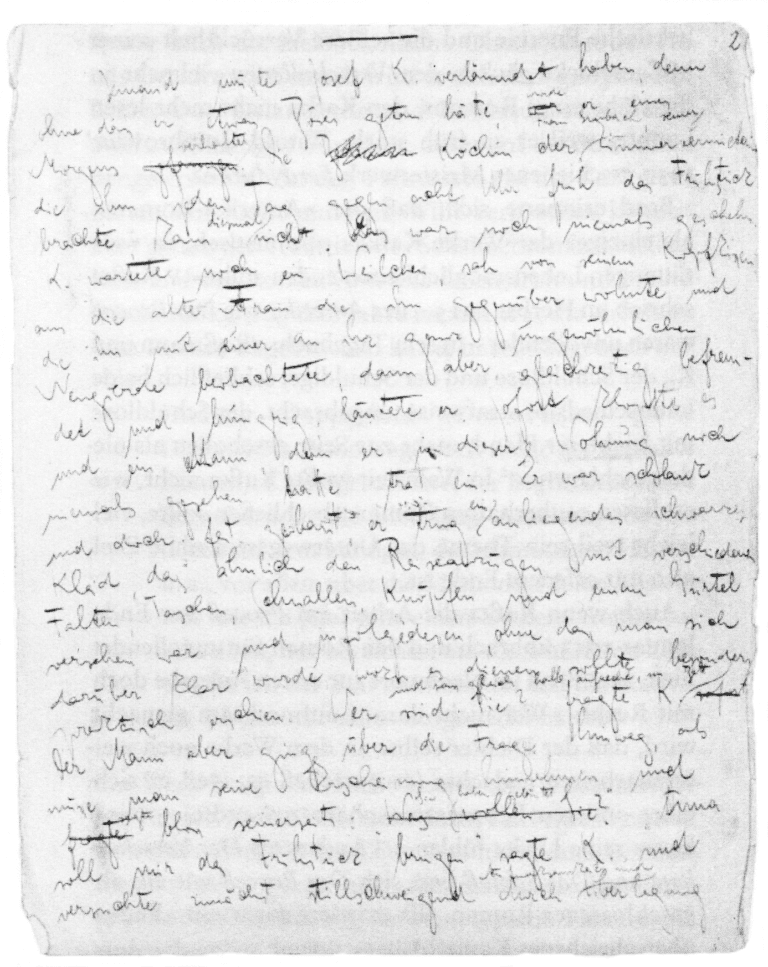 2
Jemand mußte Josef K verläumdet haben denn
ohne daß er etwas Böses getan hätte wurde er eines
Morgens verhaftet Die Köchin der Zimmervermieterin
die ihm jeden Tag gegen acht Uhr früh das Frühstück
brachte kam diesmal nicht Das war noch niemals geschehn
K wartete noch ein Weilchen sah von seinem Kopfkissen
aus die alte Frau die ihm gegenüber wohnte und
die ihn mit einer an ihr ganz ungewöhnlichen
Neugierde beobachtete dann aber gleichzeitig befrem-
det und hungrig läutete er Sofort klopfte es
und ein Mann den er in dieser Wohnung noch
niemals gesehen hatte trat ein Er war schlank
und doch fest gebaut er trug ein anliegendes schwarzes
Kleid das ähnlich den Reiseanzügen mit verschiedenen
Falten Taschen Schnallen Knöpfen und einem Gürtel
versehen war und infolgedessen ohne daß man sich
darüber klar wurde wozu es dienen sollte besonders
praktisch erschien Wer sind Sie fragte K
und saß gleich halb aufrecht im Bett
der Mann aber ging über die Frage hinweg als
müsse man seine Erscheinung hinnehmen und
sagte bloß seinerseits Sie haben geläutet Anna
soll mir das Frühstück bringen sagte K. und
versuchte zunächst stillschweigend durch Überlegung